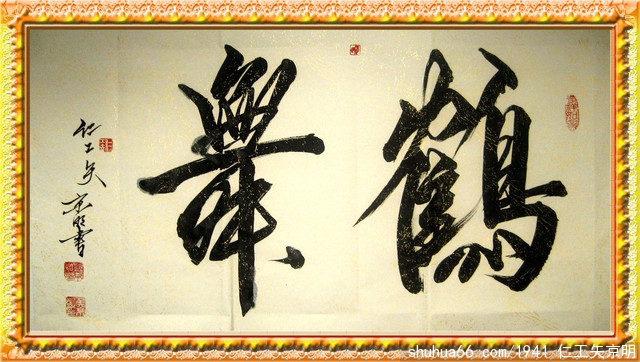 鶴舞
仁工矢
京明書
shuhua66.com/1941 仁工矢京明